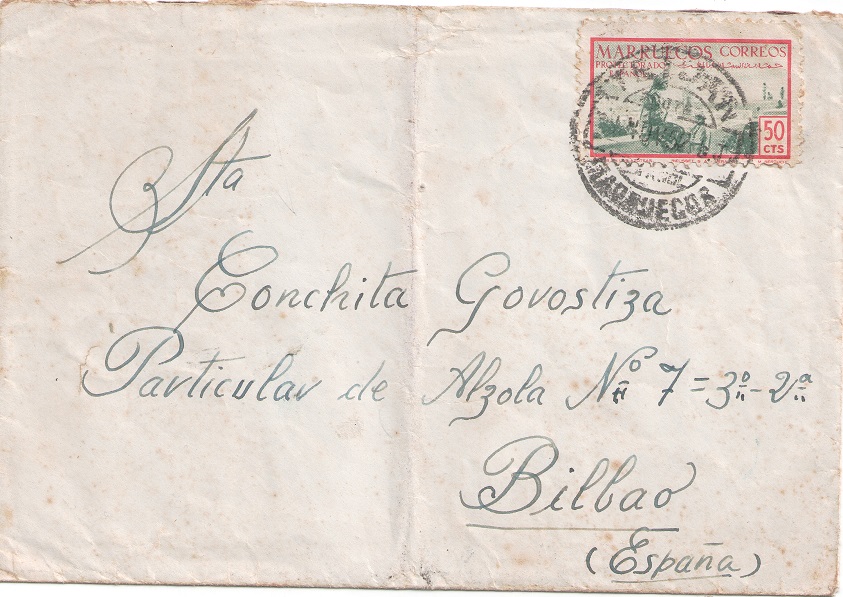 MARRUECOS CORREOS
PROTECTORADO
50
CTS
MARRUECOS
Sta
Conchita Govostiza
Particular de Alzola Nº 7 = 3º - 2ª
Bilbao
(España)